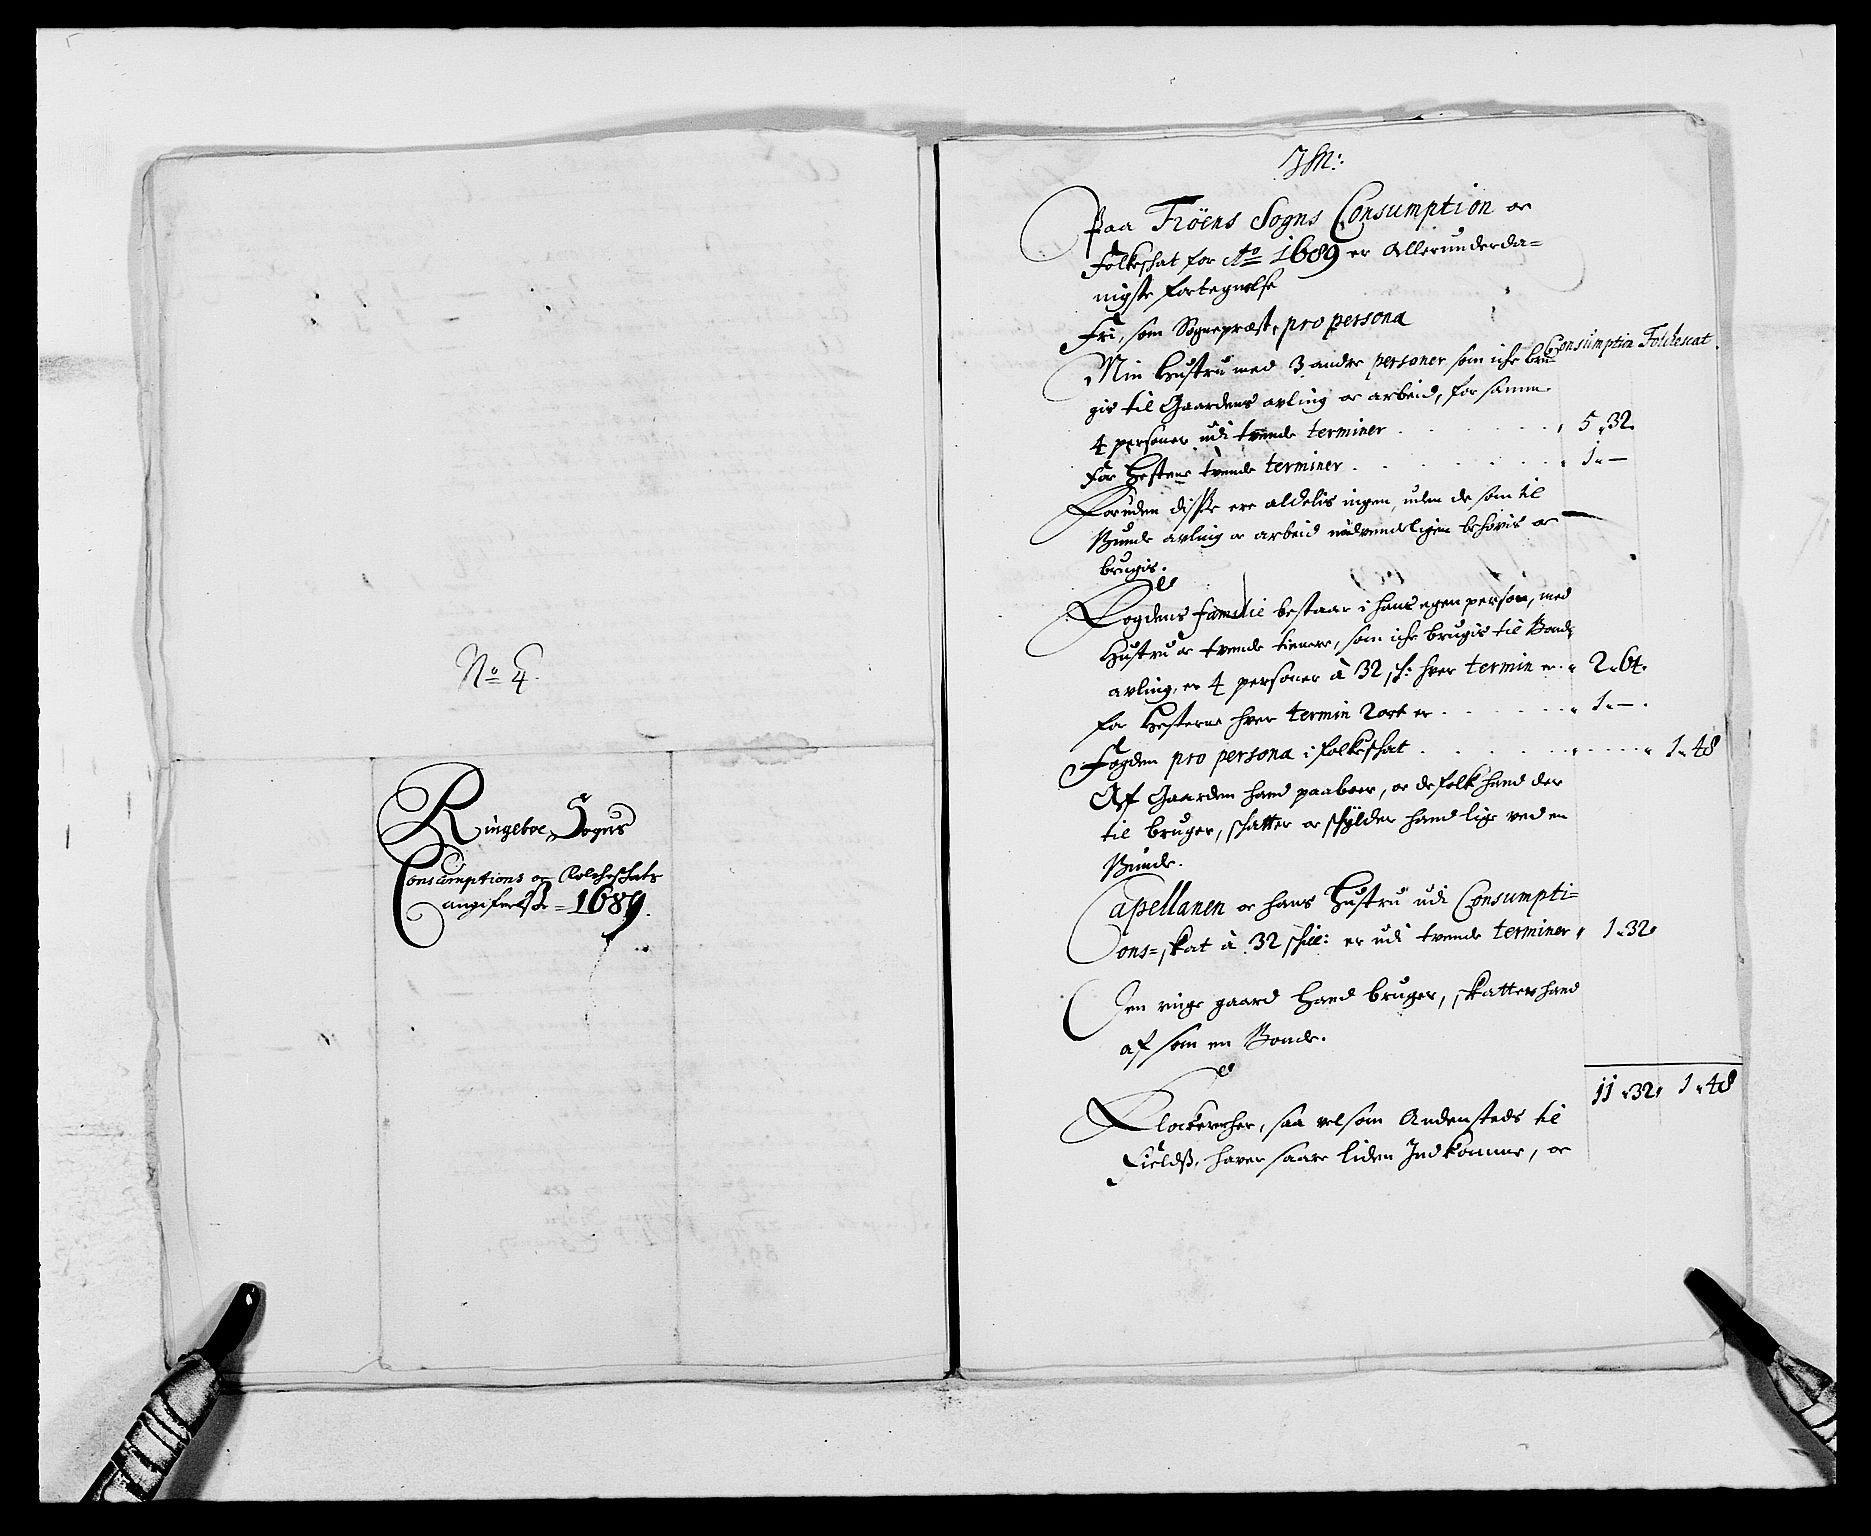 No 4.
Ringeboe Sogns
Consumptions og Folcheskats
angifvelsse = 1689.
JHM:
Paa Fröens Sogns Consumption oc
Folkeskat for Ao 1689 er Allerunderda=
nigste fortegnelse
Fri, som Sognepræst, pro persona
Consumption Folckescat.
Min Hustru med 3 andre personer som iche bru=
gis til Gaardens avling oc arbeid, for samme
4 personer udi tvende terminer . . . . . . 5 „ 32.
For Hesten tvende terminer . . . . . . 1 „ —
Foruden disse ere aldelis ingen, uden de som til
Bunde avling oc arbeid nødvendeligen behøvis oc
brugis.
Fogdens familie bestaar i hans egen person, med
Hustru oc tvende tienere, som iche brugis til Bonde
avling, er 4 personer à 32 sh: hver termin er „ 2 „ 64.
for Hesterne hver termin 2 ort er . . . . . . „ 1 „ — .
Fogden pro persona i folkeskat . . . . . . 1 „ 48
Aff Gaarden hand paaboer, oc de folk hand der
til bruger, skatter oc skylder hand lige ved en
Bunde.
Capellanen oc hans Hustru udi Consumpti=
ons=skat à 32 skill: er udi tvende terminer „ 1 „ 32 „
Den ringe gaard Hand bruger, skatter hand
af som en Bonde.
11 „ 32 „ 1 „ 48
Klockeren her, saa velsom Andensteds til
Fields, haver saare liden Indkomme, oc